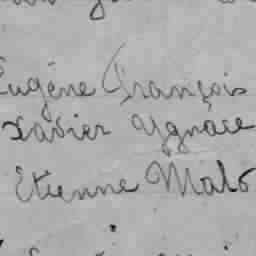 Eugène François
Xavier Ygnace
Etienne Malo